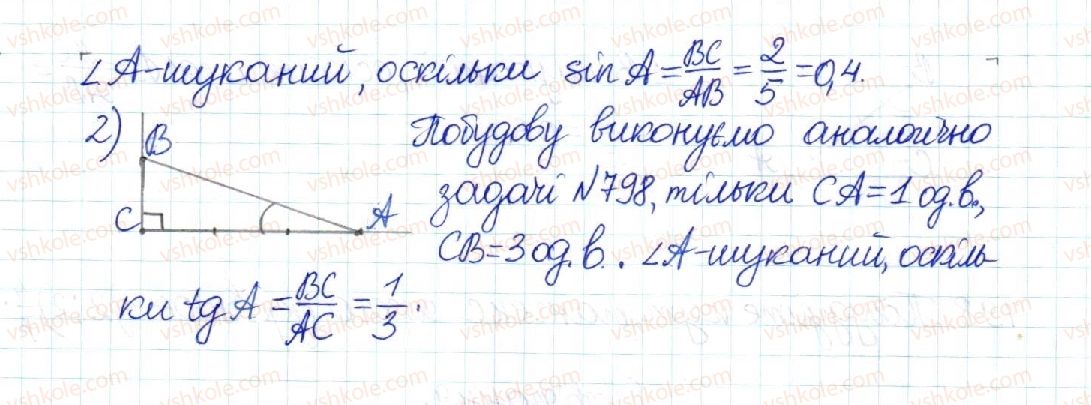 ∠A-шуканий, оскільки sin A = BC/AB = 2/5 = 0,4.
2) B C A
Побудову виконуємо аналогічно
задачі №798, тільки CA=1 од.в.,
CB=3 од.в. ∠A-шуканий, оскіль-
ки tg A = BC/AC = 1/3.
vshkole.com